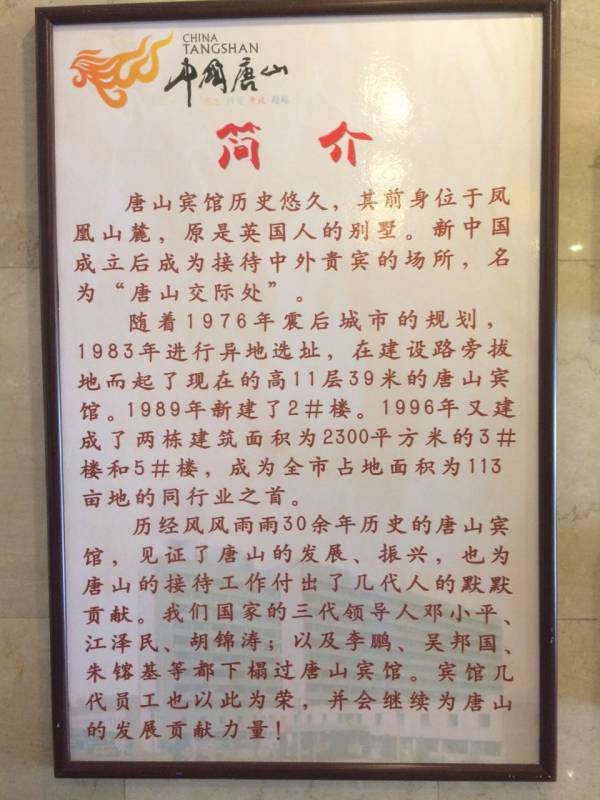 CHINA
TANGSHAN
中国唐山
简 介
唐山宾馆历史悠久，其前身位于凤
凰山麓，原是英国人的别墅。新中国
成立后成为接待中外贵宾的场所，名
为“唐山交际处”。
随着1976年震后城市的规划，
1983年进行异地选址，在建设路旁拔
地而起了现在的高11层39米的唐山宾
馆。1989年新建了2#楼。1996年又建
成了两栋建筑面积为2300平方米的3#
楼和5#楼，成为全市占地面积为113
亩地的同行业之首。
历经风风雨雨30余年历史的唐山宾
馆，见证了唐山的发展、振兴，也为
唐山的接待工作付出了几代人的默默
贡献。我们国家的三代领导人邓小平、
江泽民、胡锦涛；以及李鹏、吴邦国、
朱镕基等都下榻过唐山宾馆。宾馆几
代员工也以此为荣，并会继续为唐山
的发展贡献力量！